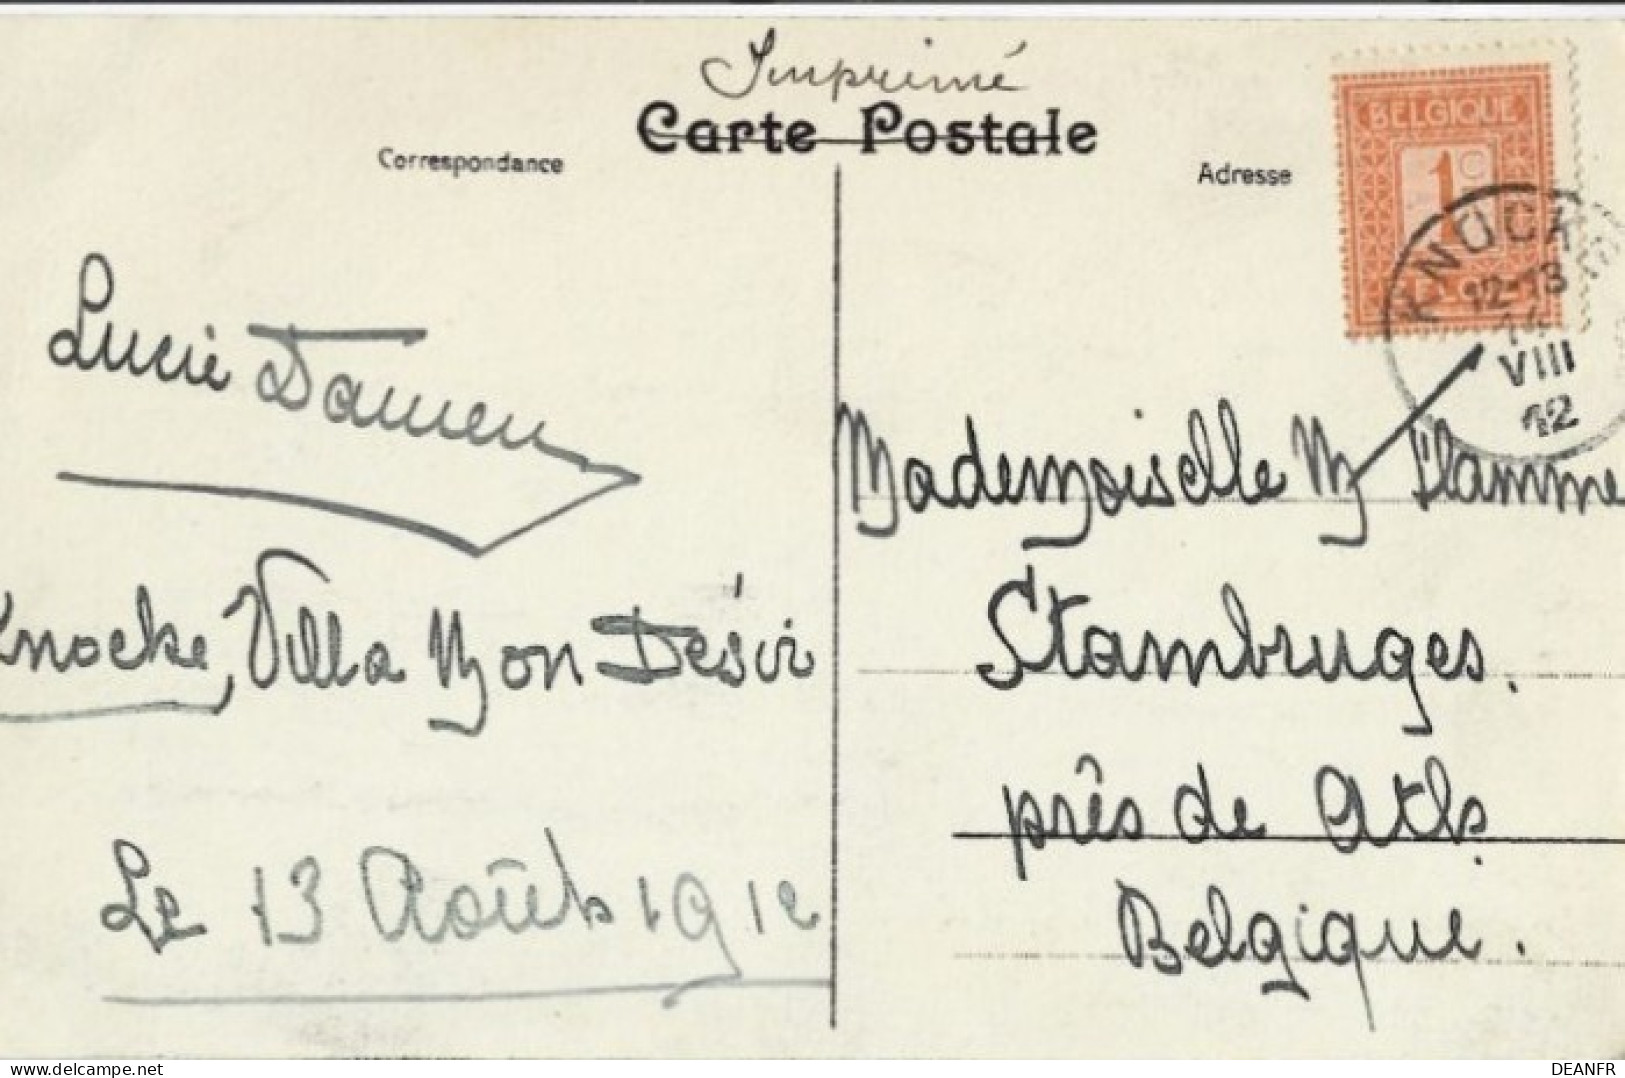 Imprimé
Carte Postale
Correspondance
Adresse
BELGIQUE
1c
KNOCKE
12-13
14
VIII
12
Lucie Damen
Knocke, Villa Mon Désir
Le 13 Août 1912
Mademoiselle M Flamme
Stambruges.
près de Ath.
Belgique.
delcampe.net
DEANFR